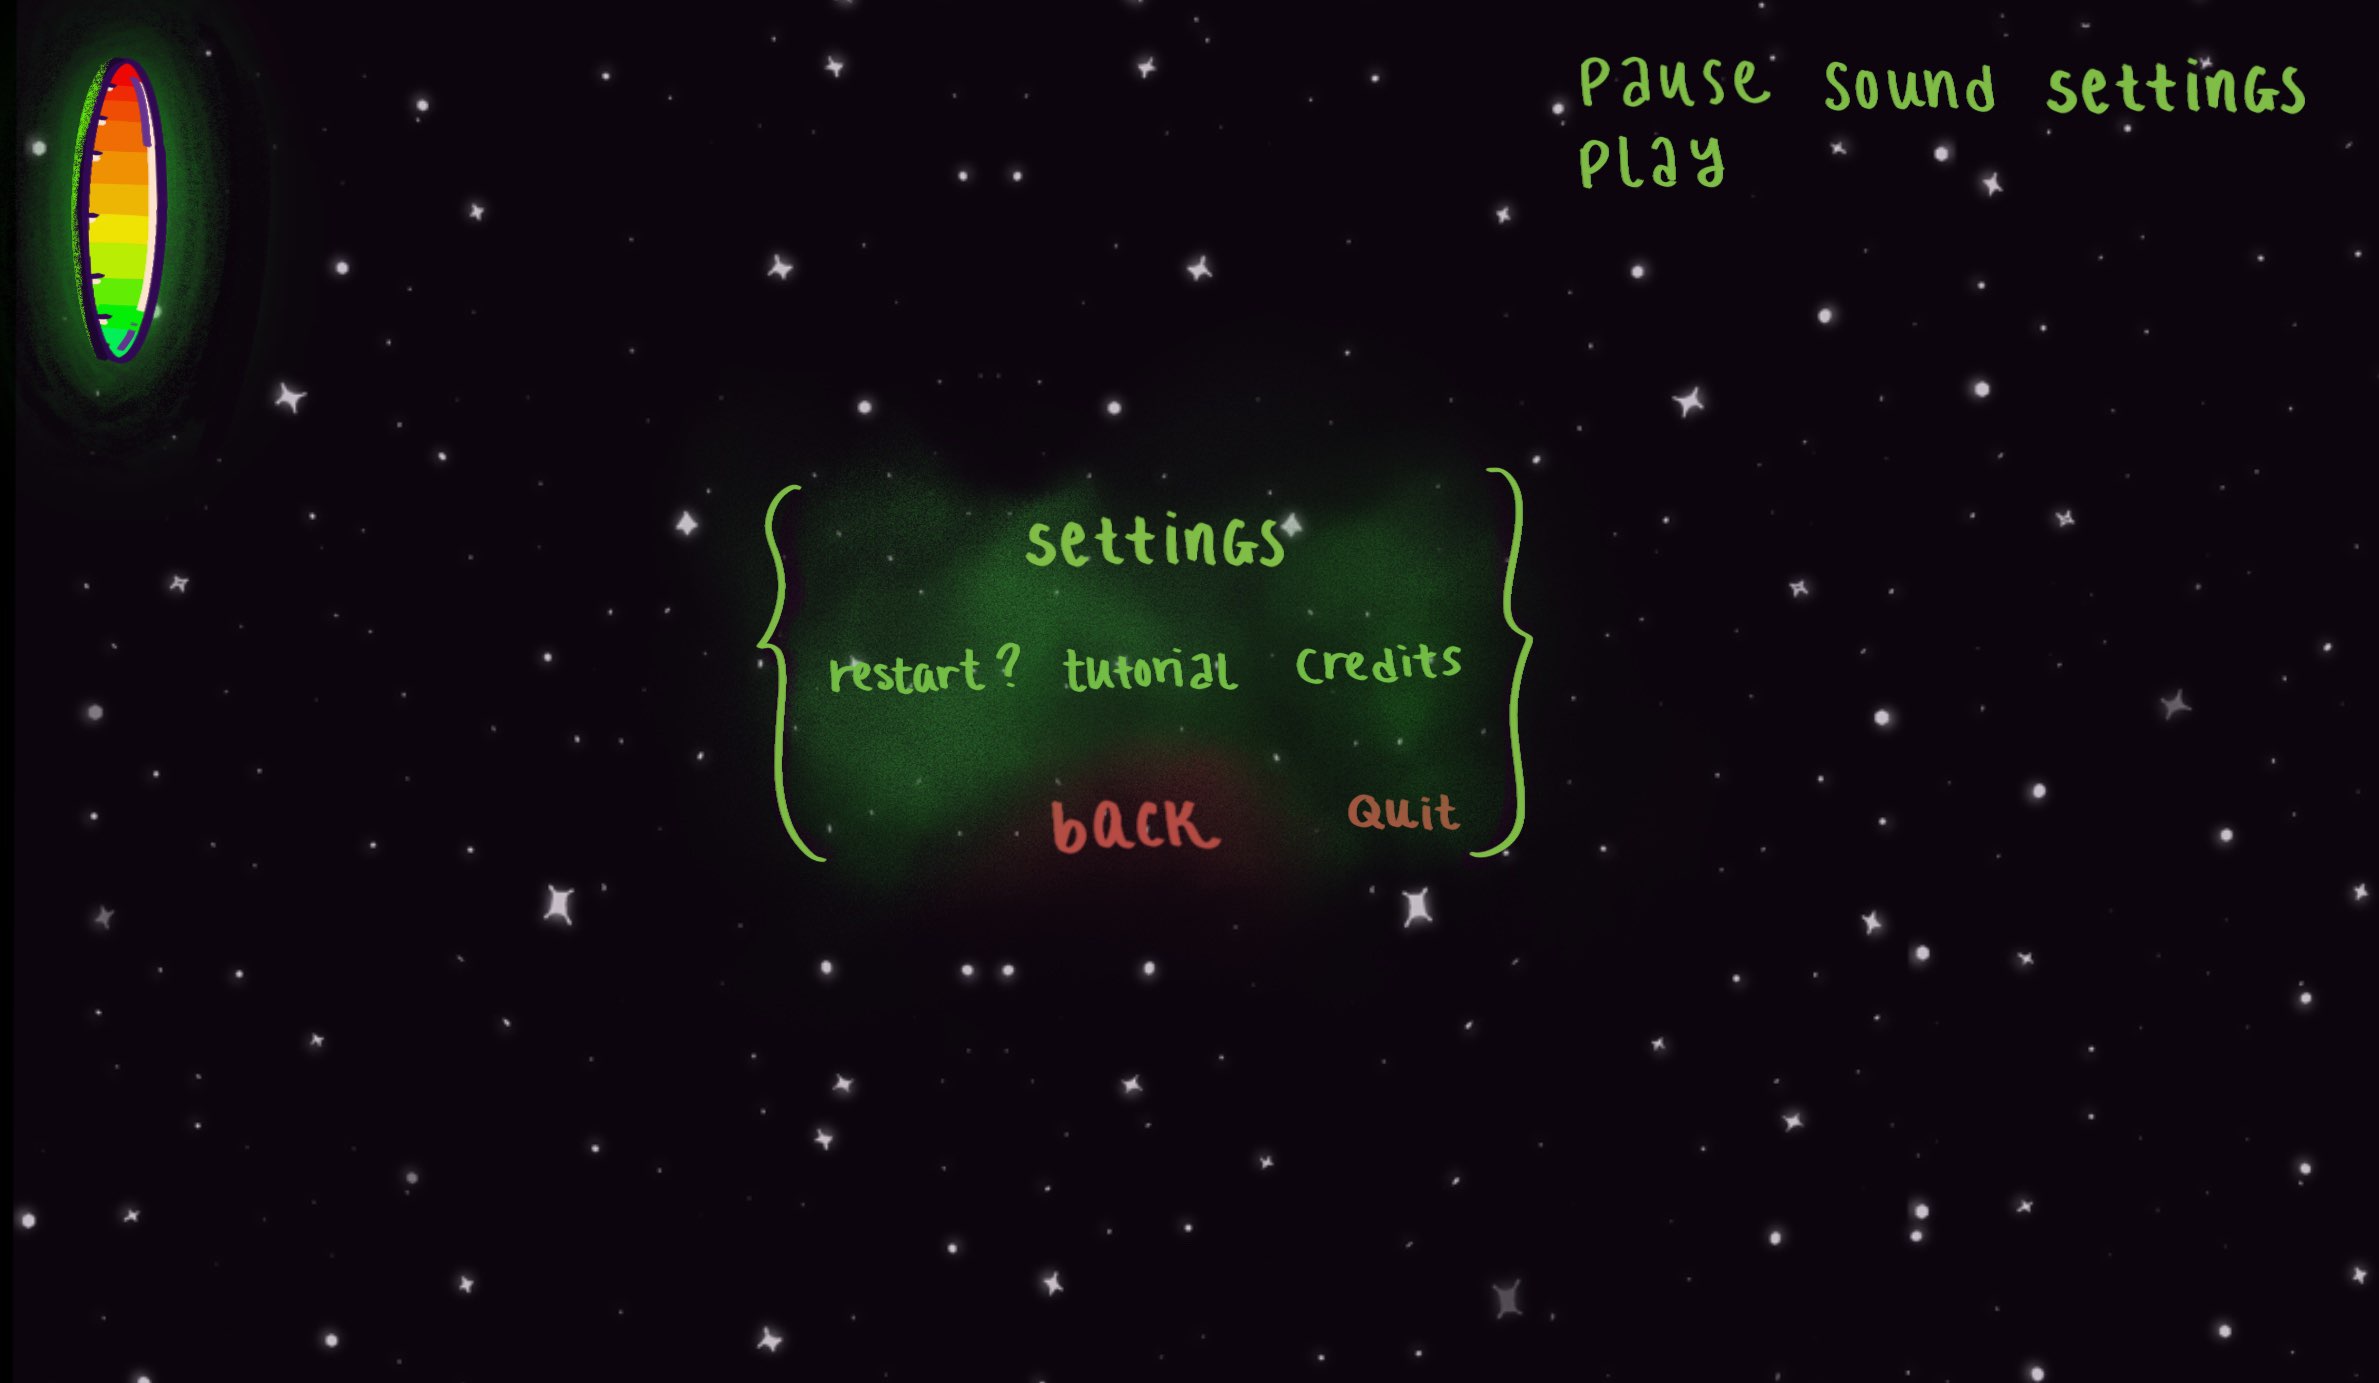 Pause sound settings
Play
settings
restart? tutorial Credits
back Quit